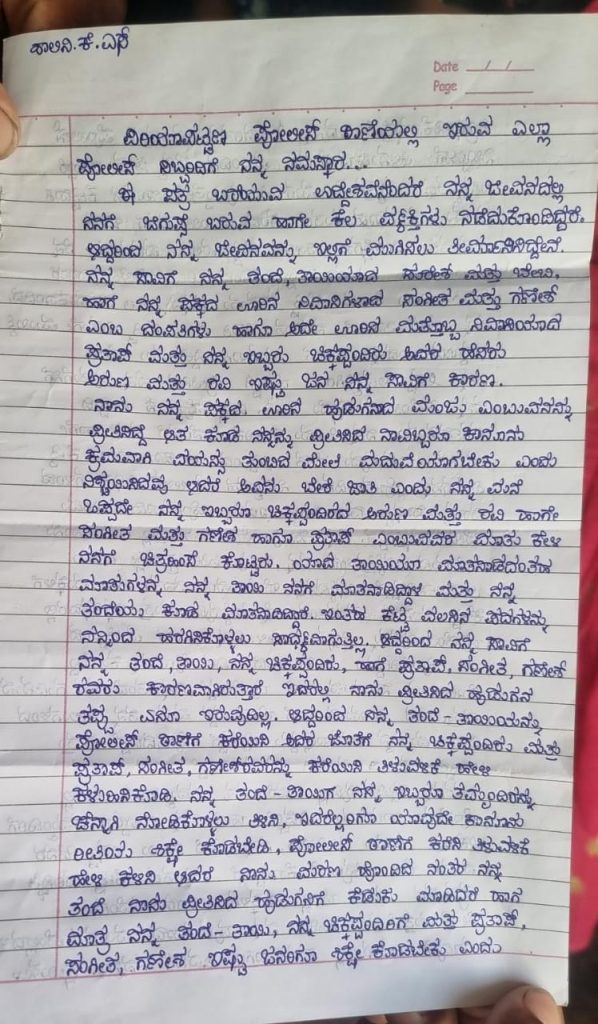 ಶಾಲಿನಿ.ಕೆ.ಎನ್
Date __/__/__
Page ______
ಪಿರಿಯಾಪಟ್ಟಣ ಪೋಲೀಸ್ ಠಾಣೆಯಲ್ಲಿ ಇರುವ ಎಲ್ಲಾ
ಪೋಲೀಸ್ ಸಿಬ್ಬಂದಿಗೆ ನನ್ನ ನಮಸ್ಕಾರ...
ಈ ಪತ್ರ ಬರೆಯುವ ಉದ್ದೇಶವೆನೆಂದರೆ ನನ್ನ ಜೀವನದಲ್ಲಿ
ನನಗೆ ಜಿಗುಪ್ಸೆ ಬರುವ ಹಾಗೇ ಕೆಲ ವ್ಯಕ್ತಿಗಳು ನಡೆದುಕೊಂಡಿದ್ದಾರೆ.
ಆದ್ದರಿಂದ ನನ್ನ ಜೀವನವನ್ನು ಇಲ್ಲಿಗೆ ಮುಗಿಸಲು ತೀರ್ಮಾನಿಸಿದ್ದೇನೆ.
ನನ್ನ ಸಾವಿಗೆ ನನ್ನ ತಂದೆ, ತಾಯಿಯಾದ ಸುರೇಶ ಮತ್ತು ಬೇಬಿ,
ಹಾಗೆ ನನ್ನ ಪಕ್ಕದ ಊರಿನ ನಿವಾಸಿಗಳಾದ ಸಂಗೀತ ಮತ್ತು ಗಣೇಶ್
ಎಂಬ ದಂಪತಿಗಳು ಹಾಗೂ ಅದೇ ಊರಿನ ಮತ್ತೊಬ್ಬ ನಿವಾಸಿಯಾದ
ಪ್ರತಾಪ್ ಮತ್ತು ನನ್ನ ಇಬ್ಬರು ಚಿಕ್ಕಪ್ಪಂದಿರು ಅವರ ಹೆಸರು
ಅರುಣ ಮತ್ತು ರವಿ ಇಷ್ಟು ಜನ ನನ್ನ ಸಾವಿಗೆ ಕಾರಣ.
ನಾನು ನನ್ನ ಪಕ್ಕದ ಊರಿನ ಹುಡುಗನಾದ ಮಂಜು ಎಂಬುವವನನ್ನು
ಪ್ರೀತಿಸಿದ್ದೆ ಆತ ಕೂಡ ನನ್ನನ್ನು ಪ್ರೀತಿಸಿದ ನಾವಿಬ್ಬರೂ ಕಾನೂನು
ಕ್ರಮವಾಗಿ ವಯಸ್ಸು ತುಂಬಿದ ಮೇಲೆ ಮದುವೆಯಾಗಬೇಕು ಎಂದು
ನಿಶ್ಚಯಿಸಿದೆವು ಆದರೆ ಅವನು ಬೇರೆ ಜಾತಿ ಎಂದು ನನ್ನ ಮನೆ
ಒಪ್ಪದೇ ನನ್ನ ಇಬ್ಬರೂ ಚಿಕ್ಕಪ್ಪಂದಿರಾದ ಅರುಣ ಮತ್ತು ರವಿ ಹಾಗೇ
ಸಂಗೀತ ಮತ್ತು ಗಣೇಶ್ ಹಾಗೂ ಪ್ರತಾಪ್ ಎಂಬುವವರ ಮಾತು ಕೇಳಿ
ನನಗೆ ಚಿತ್ರಹಿಂಸೆ ಕೊಟ್ಟರು. ಯಾವ ತಾಯಿಯೂ ಮಾತನಾಡದಂತಹ
ಮಾತುಗಳನ್ನು ನನ್ನ ತಾಯಿ ನನಗೆ ಮಾತನಾಡಿದ್ದಾಳೆ ಮತ್ತು ನನ್ನ
ತಂದೆಯು ಕೂಡ ಮಾತನಾಡಿದ್ದಾರೆ. ಇಂತಹ ಕೆಟ್ಟ ಹೊಲಸಿನ ಪದಗಳನ್ನು
ನನ್ನಿಂದ ಅರಗಿಸಿಕೊಳ್ಳಲು ಸಾಧ್ಯವಾಗುತ್ತಿಲ್ಲ, ಆದ್ದರಿಂದ ನನ್ನ ಸಾವಿಗೆ
ನನ್ನ ತಂದೆ, ತಾಯಿ, ನನ್ನ ಚಿಕ್ಕಪ್ಪಂದಿರು, ಹಾಗೆ ಪ್ರತಾಪ್, ಸಂಗೀತ, ಗಣೇಶ್
ರವರು ಕಾರಣವಾಗಿರುತ್ತಾರೆ ಇದರಲ್ಲಿ ನಾನು ಪ್ರೀತಿಸಿದ ಹುಡುಗನ
ತಪ್ಪು ಏನೂ ಇರುವುದಿಲ್ಲ. ಆದ್ದರಿಂದ ನನ್ನ ತಂದೆ-ತಾಯಿಯನ್ನು
ಪೋಲೀಸ್ ಠಾಣೆಗೆ ಕರೆಯಿಸಿ ಅವರ ಜೊತೆಗೆ ನನ್ನ ಚಿಕ್ಕಪ್ಪಂದಿರು ಮತ್ತು
ಪ್ರತಾಪ್, ಸಂಗೀತ, ಗಣೇಶ್‌ರವರನ್ನು ಕರೆಯಿಸಿ ತಿಳುವಳಿಕೆ ಹೇಳಿ
ಕಳುಹಿಸಿಕೊಡಿ. ನನ್ನ ತಂದೆ-ತಾಯಿಗೆ ನನ್ನ ಇಬ್ಬರೂ ತಮ್ಮಂದಿರನ್ನು
ಚೆನ್ನಾಗಿ ನೋಡಿಕೊಳ್ಳಲು ತಿಳಿಸಿ, ಇದರಲ್ಲಿಗೂ ಯಾವುದೇ ಕಾನೂನು
ರೀತಿಯ ಶಿಕ್ಷೇ ಕೊಡಬೇಡಿ, ಪೋಲೀಸ್ ಠಾಣೆಗೆ ಕರೆಸಿ ತಿಳುವಳಿಕೆ
ಹೇಳಿ ಕಳಿಸಿ ಆದರೆ ನಾನು ಮರಣ ಹೊಂದಿದ ನಂತರ ನನ್ನ
ತಂದೆ ನಾನು ಪ್ರೀತಿಸಿದ ಹುಡುಗನಿಗೆ ಕೆಡುಕು ಮಾಡಿದರೆ ಹಾಗ
ಮಾತ್ರ ನನ್ನ ತಂದೆ-ತಾಯಿ, ನನ್ನ ಚಿಕ್ಕಪ್ಪಂದಿರಿಗೆ ಮತ್ತು ಪ್ರತಾಪ್,
ಸಂಗೀತ, ಗಣೇಶ್ ಇಷ್ಟು ಜನರಿಗೂ ಶಿಕ್ಷೇ ಕೊಡಬೇಕು ಎಂದು